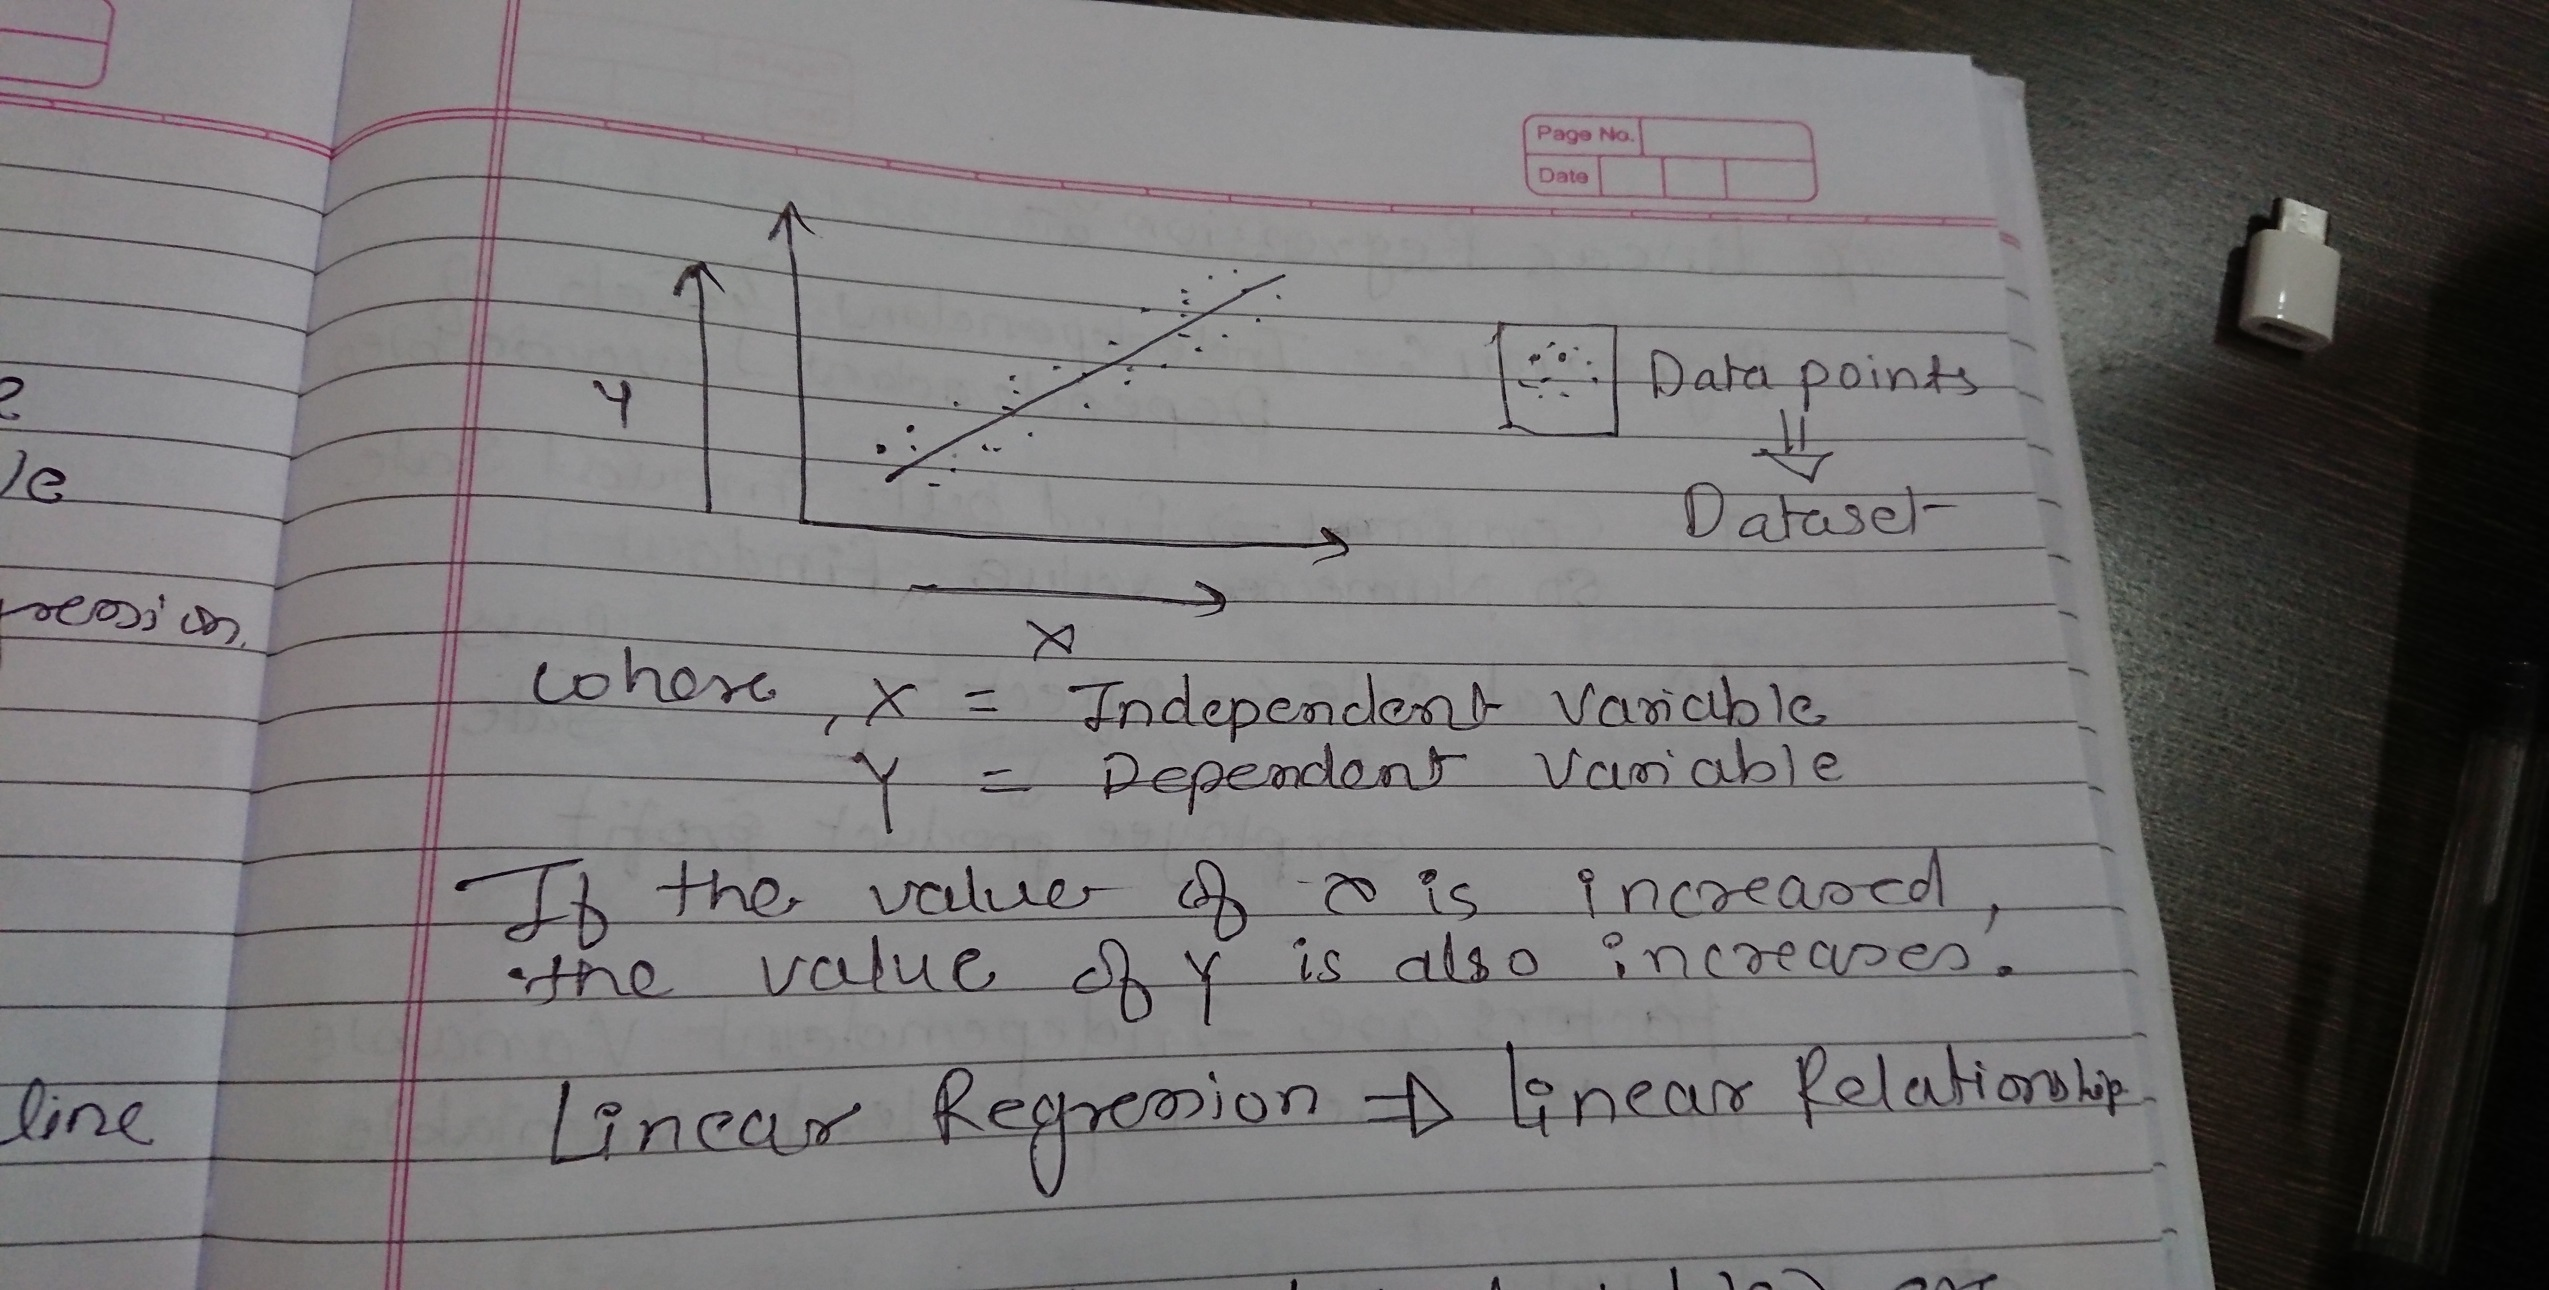 Page No.
Date
Y
Data points
Dataset
X
le
ression.
where, X = Independent Variable
Y = Dependent Variable
If the value of x is increased,
the value of Y is also increases.
line
Linear Regression ⇒ linear Relationship